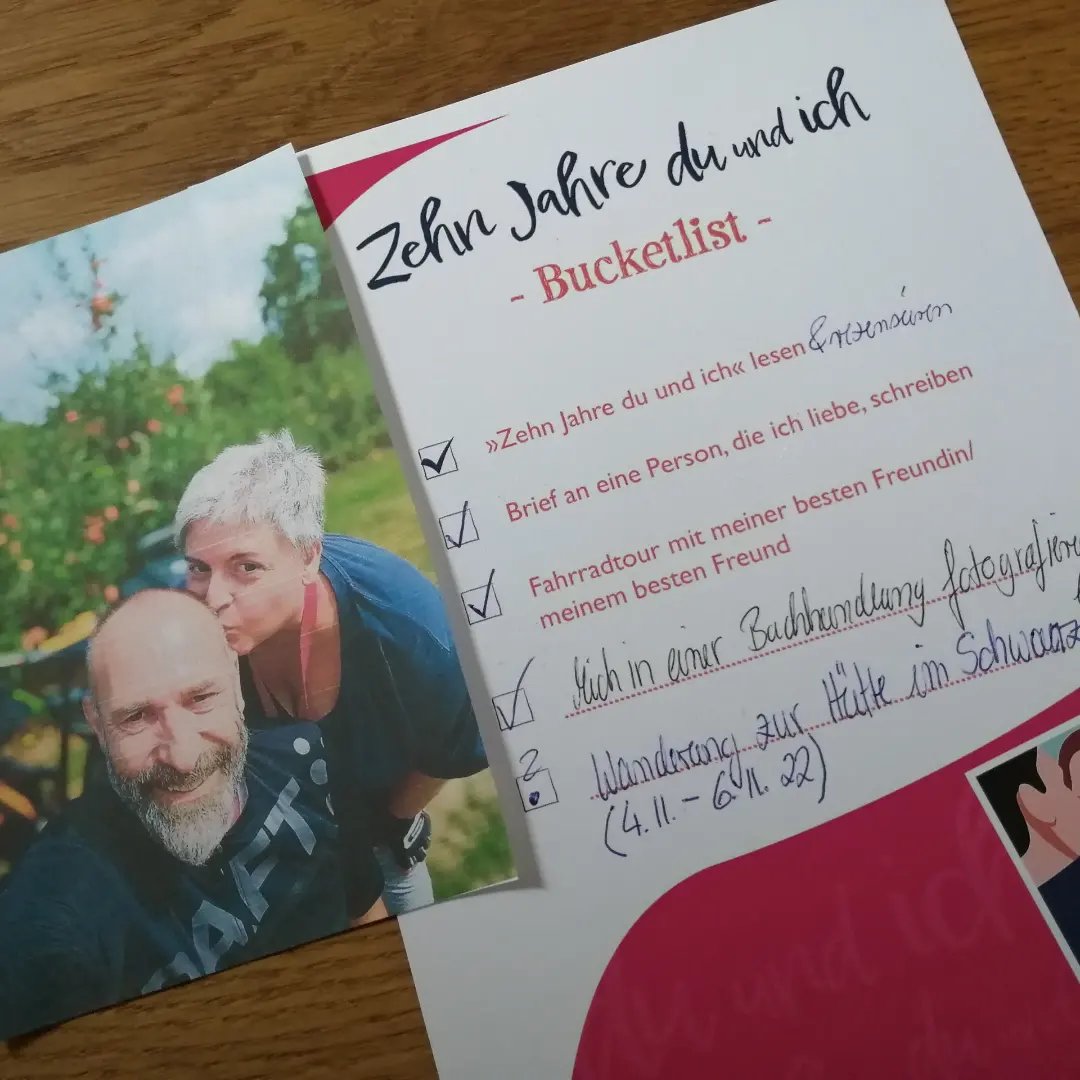 Zehn Jahre du und ich
- Bucketlist -
»Zehn Jahre du und ich« lesen & rezensieren
Brief an eine Person, die ich liebe, schreiben
Fahrradtour mit meiner besten Freundin/
meinem besten Freund
Mich in einer Buchhandlung fotografieren
? Wanderung zur Hütte im Schwarz
(4.11. - 6.11. 22)
CRAFT
du und ich
du